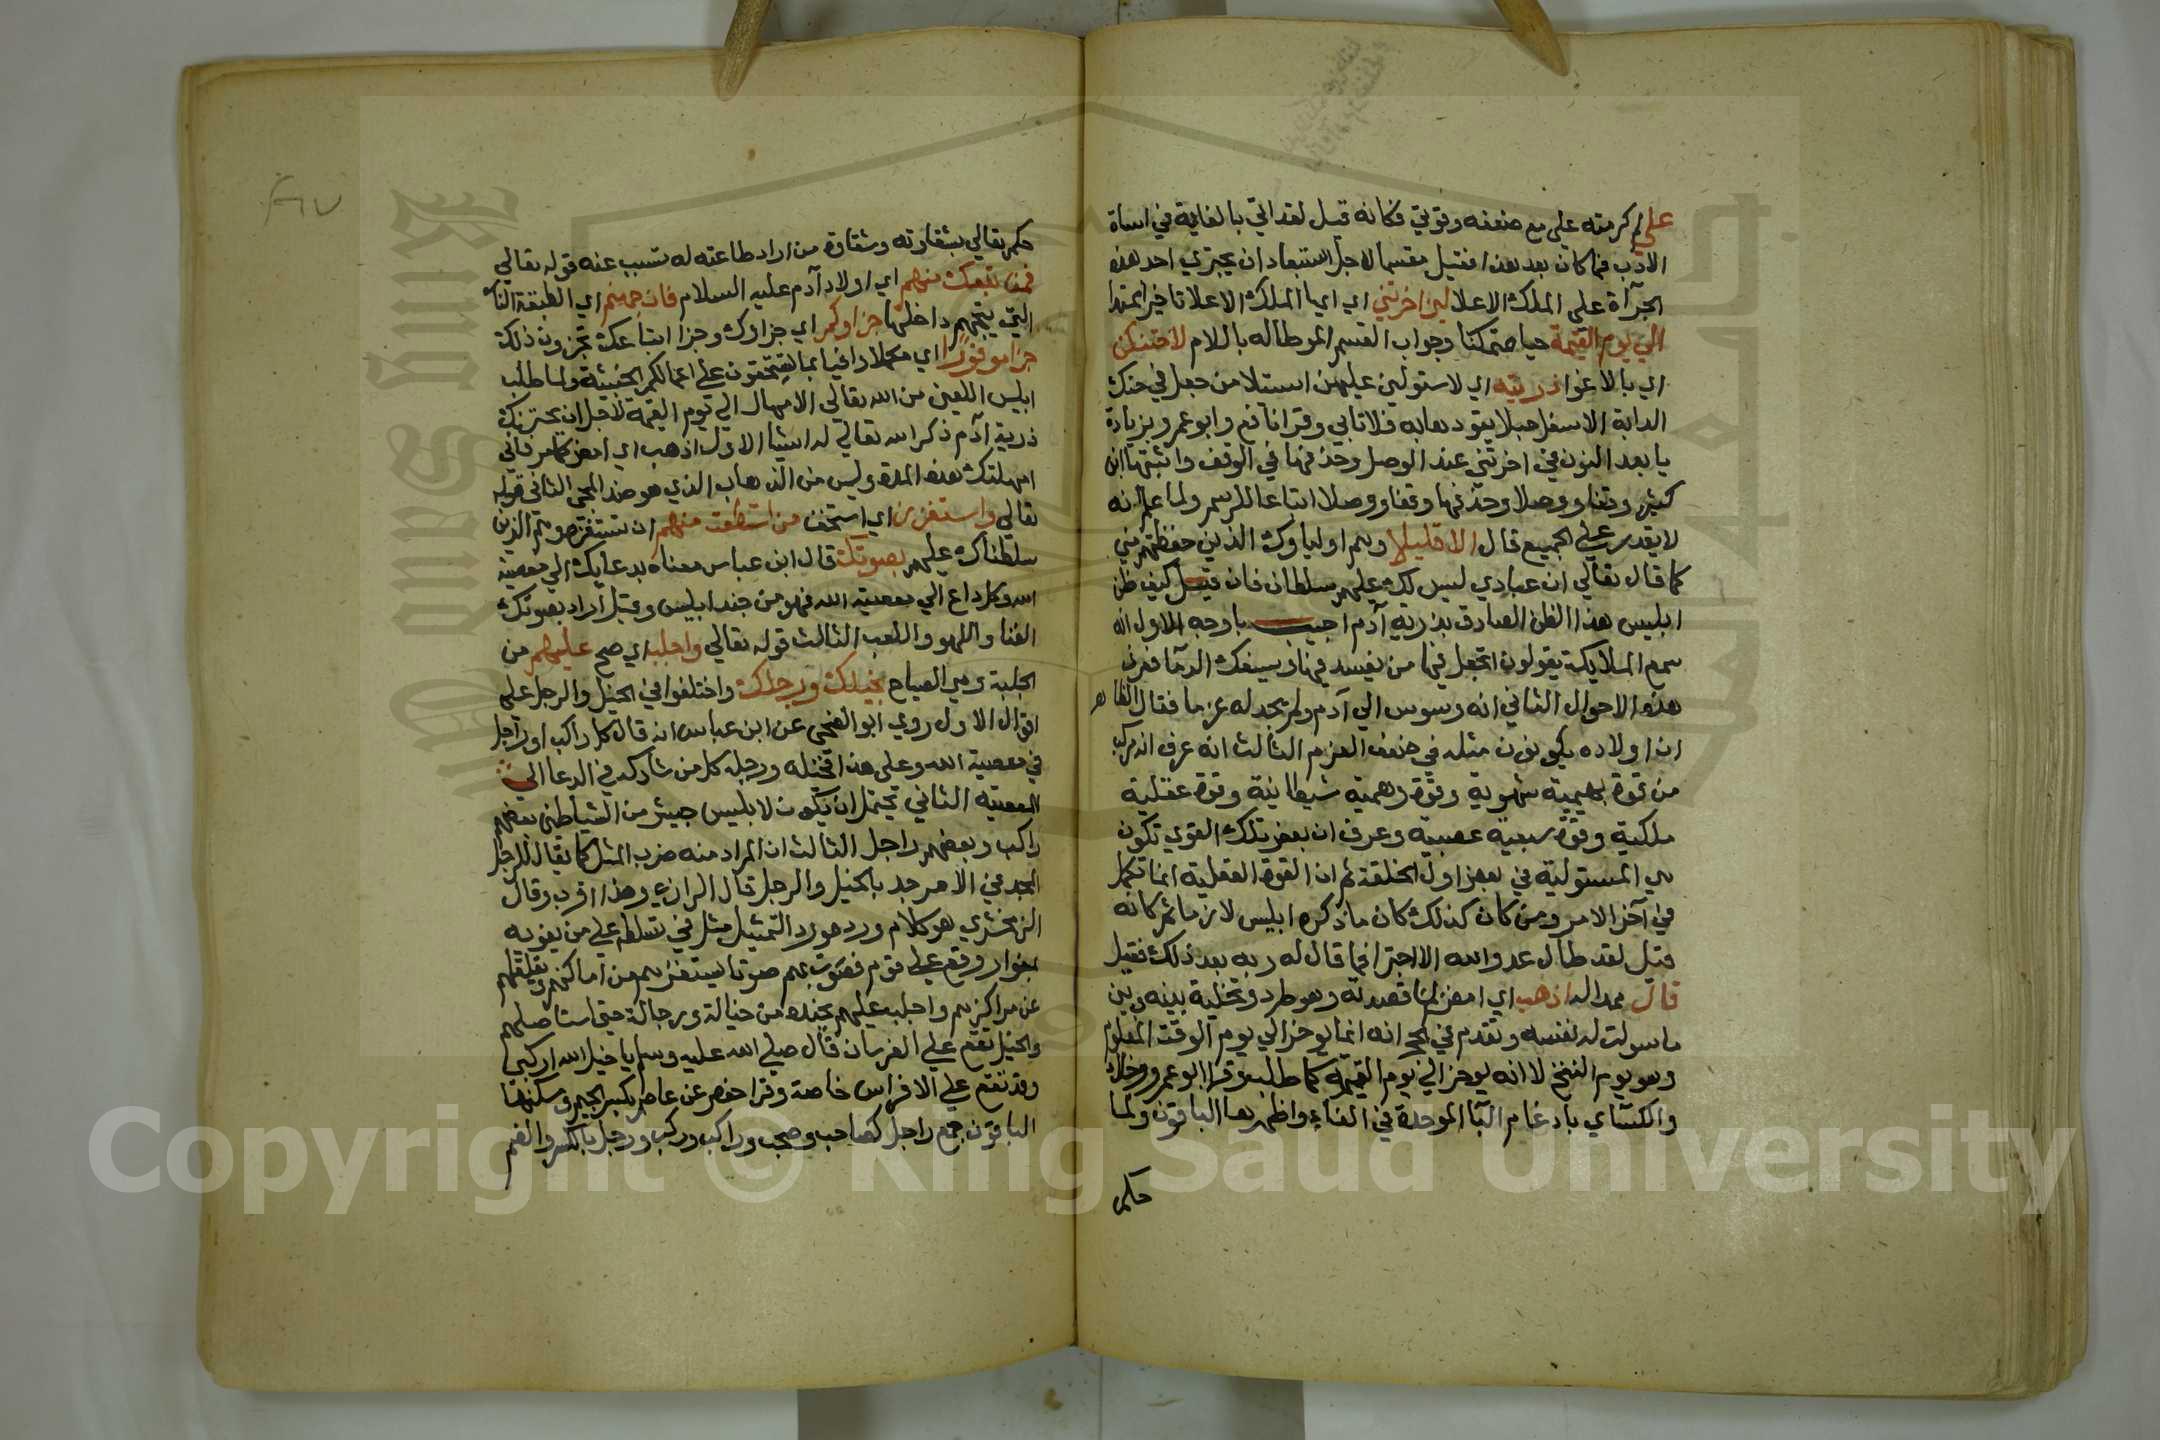 علي لم كرمته علي مع ضعفه وقوتي فكانه قيل لقد اتي بالغاية في اساة
الادب فما كان بعد هذا فقيل مقسما لاجل استبعاد ان يجتري احد هذه
الجرآة علي الملك الاعلا لين اخرتني اي ايها الملك الاعلا تاخيرا ممتدا
الي يوم القيمة حيا متمكنا وجواب القسم الموطا له باللام لاحتنكن
اي بالاغوا ذريته اي لاستولين عليهم من استلا من جعل في حنك
الدابة الاسفل حبلا يقودها به فلا تابي وقرا نافع وابو عمرو بزيادة
يا بعد النون في اخرتني عند الوصل وحذفها في الوقف واثبتها ابن
كثير وقفا ووصلا وحذفها وقفا ووصلا اتباعا للرسم ولما علم انه
لا يقدر علي الجميع قال الا قليلا وهم اولياوك الذين حفظتهم مني
كما قال تعالي ان عبادي ليس لك عليهم سلطان فان قيل كيف ظن
ابليس هذا الظن الصادق بذرية آدم اجيب باوجه الاول انه
سمع الملايكة يقولون اتجعل فيها من يفسد فيها ويسفك الدما فعرف
هذه الاحوال الثاني انه وسوس الي آدم ولم يجد له عزما فقال الظاهر
ان اولاده يكونون مثله في ضعف العزم الثالث انه عرف انه مركب
من قوة بهيمية شهوية وقوة وهمية شيطانية وقوة عقلية
ملكية وقوة سبعية غضبية وعرف ان بعض تلك القوي تكون
هي المستولية في بعض اول الخلقة ثم ان القوة العقلية انما تكمل
في آخر الامر ومن كان كذلك كان ما ذكره ابليس لازما ثم كانه
قيل لقد طال عدو الله الاجترا فما قال له ربه بعد ذلك فقيل
قال مهددا له اذهب اي امض لما قصدته وهو طرد وتخلية بينه وبين
ما سولت له نفسه وتقدم في الحجر انه انما يوخر الي يوم الوقت المعلوم
وهو يوم النفخ لا انه يوخر الي يوم القيمة كما طلب وقرا ابو عمرو وخلاد
والكساي بادغام البا الموحدة في الفاء واظهرها الباقون ولما
حكم
حكم تعالي بشقاوته وشقاوة من اراد طاعته له تسبب عنه قوله تعالي
فمن تبعك منهم اي اولاد آدم عليه السلام فان جهنم اي الطبقة النارية
التي يتجهم داخلها جزاوكم اي جزاوك وجزا اتباعك تجزون ذلك
جزا موفورا اي مكملا وافيا بما تستحقون علي اعمالكم الخبيثة ولما طلب
ابليس اللعين من الله تعالي الامهال الي يوم القيمة لاجل ان يحتنك
ذرية آدم ذكر الله تعالي له اشيا الاول اذهب اي امض كما مر فاني
امهلتك هذه المدة وليس من الذهاب الذي هو ضد المجي الثاني قوله
تعالي واستفزز اي استخف من استطعت منهم ان تستفزهم وهم الذين
سلطناك عليهم بصوتك قال ابن عباس معناه بدعايك الي معصية
الله وكل داع الي معصية الله فهو من جند ابليس وقيل اراد بصوتك
الغنا واللهو واللعب الثالث قوله تعالي واجلب اي صح عليهم من
الجلبة وهي الصياح بخيلك ورجلك واختلفوا في الخيل والرجل علي
اقوال الاول روي ابو الضحي عن ابن عباس انه قال كل راكب او راجل
في معصية الله وعلي هذا فخيله ورجله كل من شاركه في الدعا الي
المعصية الثاني يحتمل ان يكون لابليس جيش من الشياطين بعضهم
راكب وبعضهم راجل الثالث ان المراد منه ضرب المثل كما يقال للرجل
المجد في الامر جد بالخيل والرجل قال الرازي وهذا اقرب وقال
الزمخشري هو كلام ورد مورد التمثيل مثل في تسلطه علي من يغويه
بمغوار وقع علي قوم فصوت بهم صوتا يستفزهم من اماكنهم ويقلقهم
عن مراكزهم واجلب عليهم بجنده من خيالة ورجالة حتي استاصلهم
والخيل تقع علي الفرسان قال صلي الله عليه وسلم يا خيل الله اركبي
وقد تقع علي الافراس خاصة وقرا حفص عن عاصم بكسر الجيم وسكنها
الباقون جمع راجل كصاحب وصحب وراكب وركب ورجل بالكسر والضم
Copyright © King Saud University